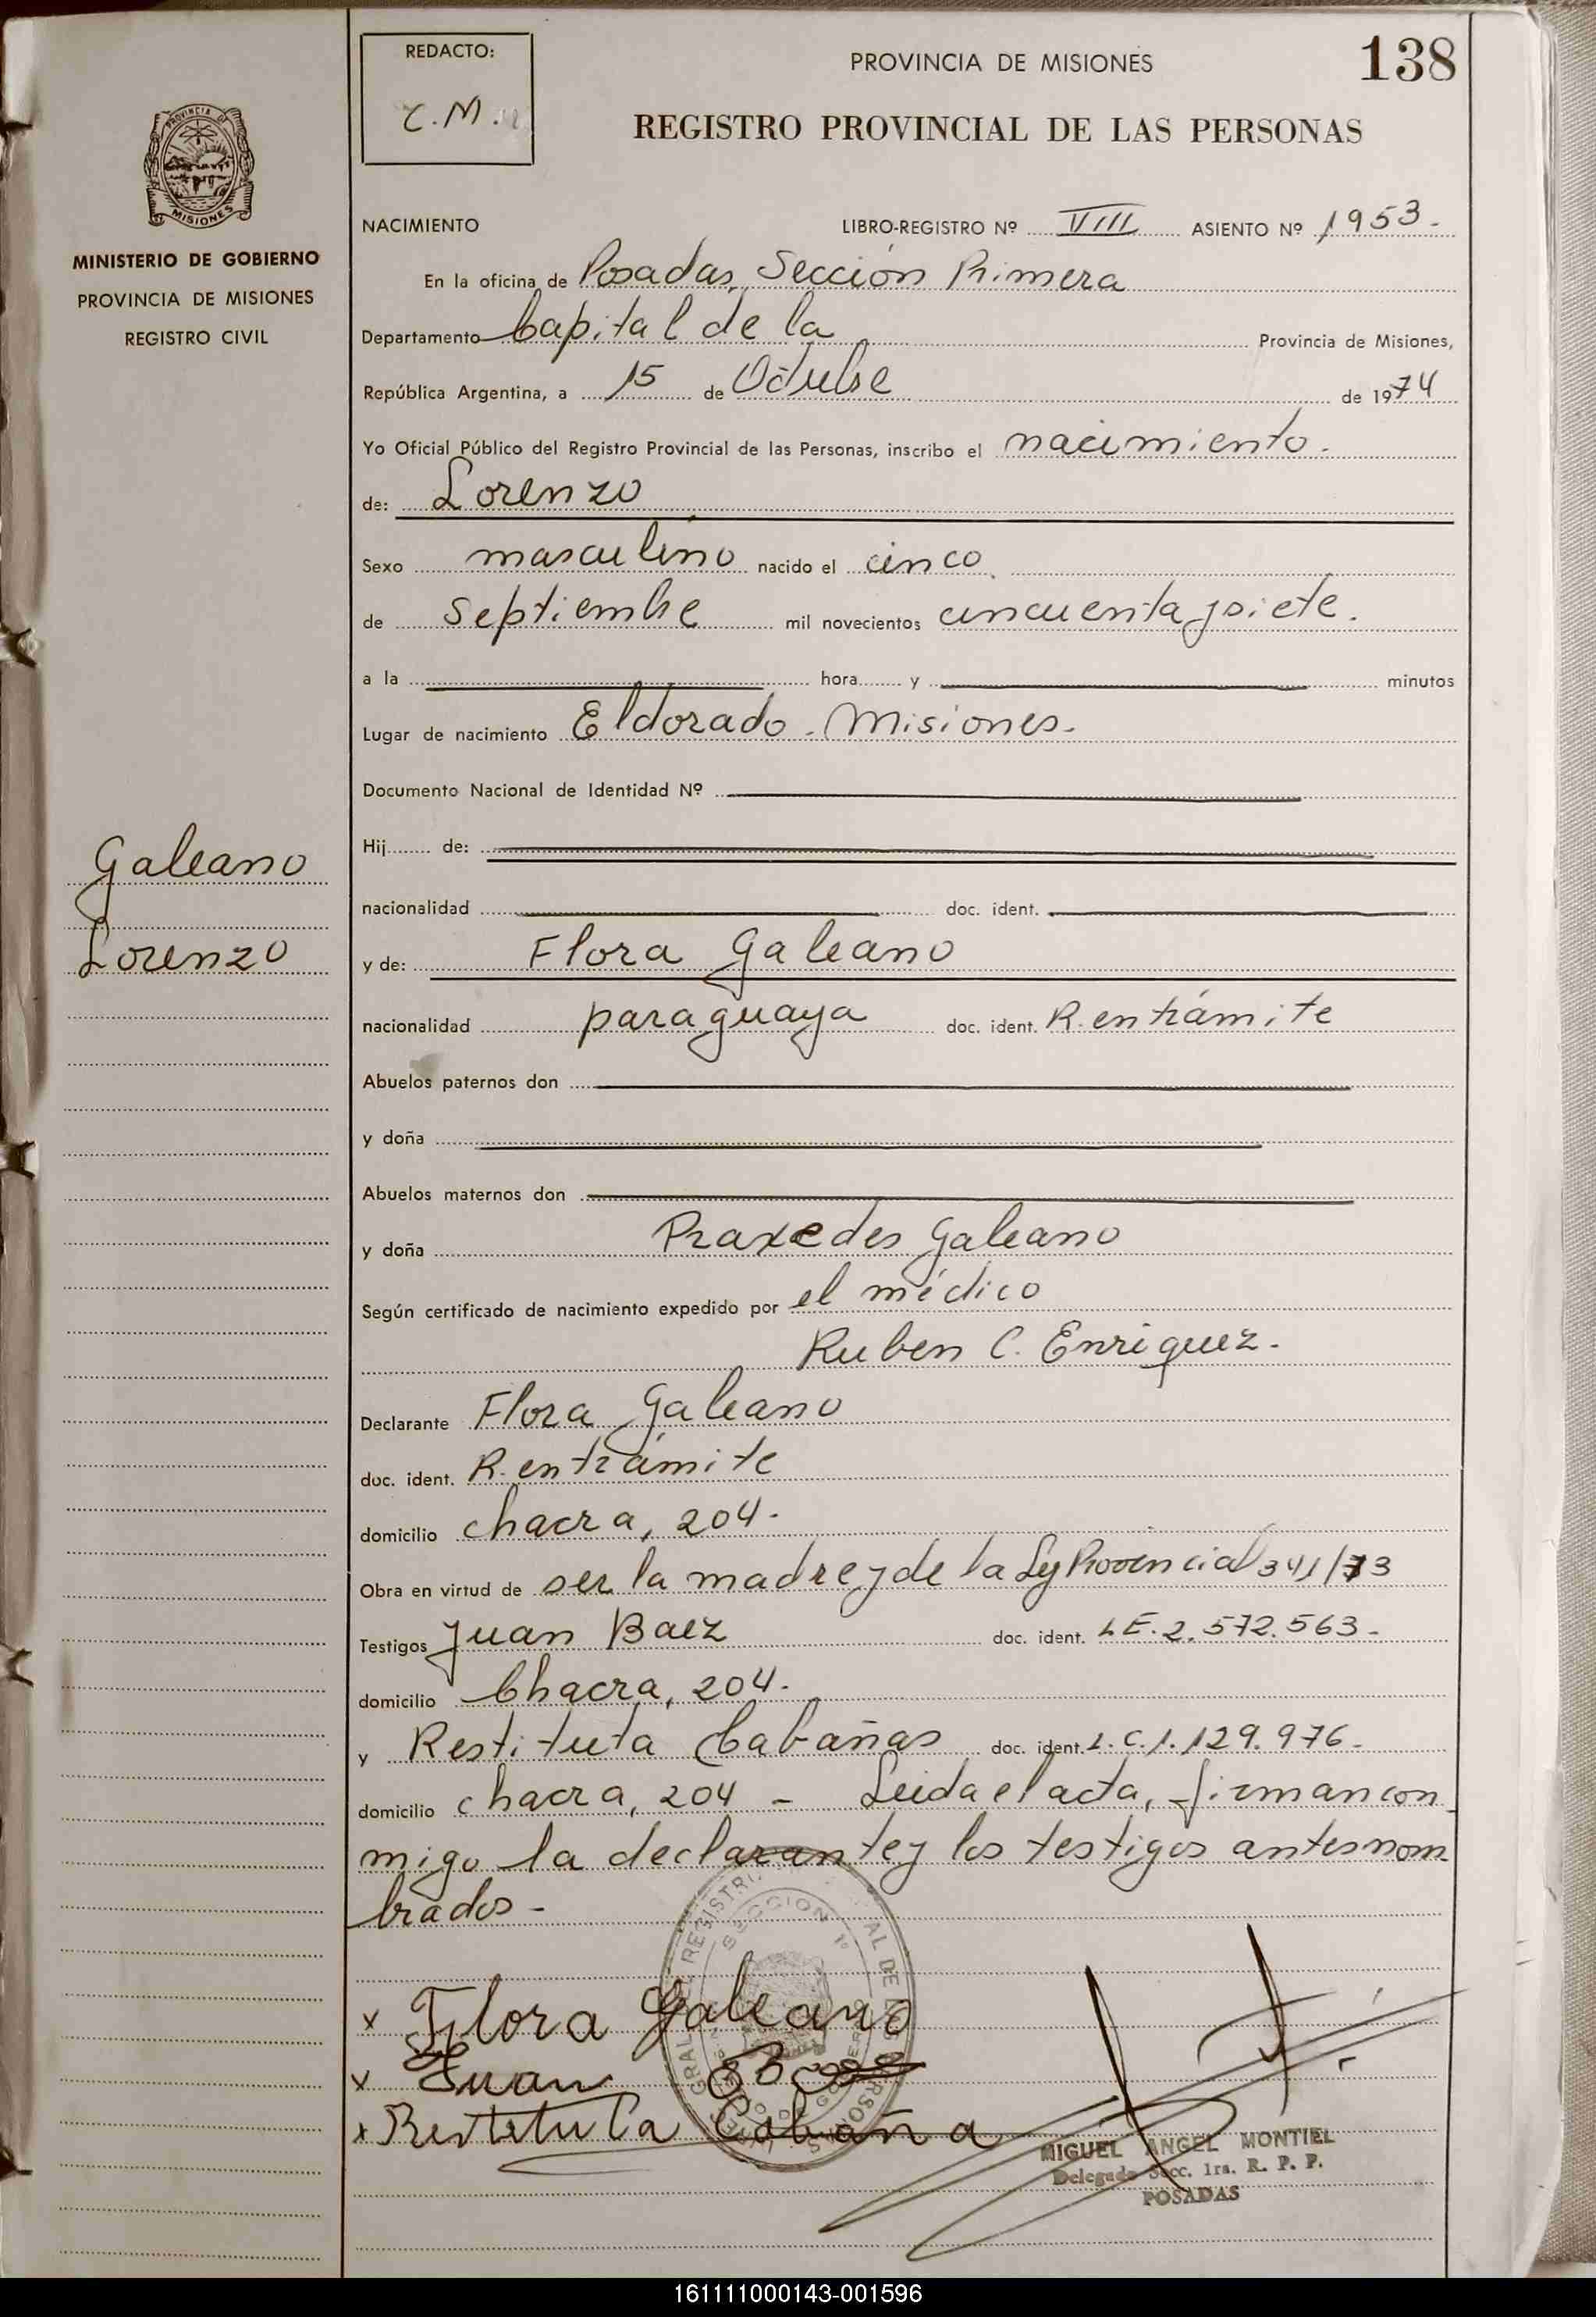 REDACTO:
PROVINCIA DE MISIONES
138
C.M.
REGISTRO PROVINCIAL DE LAS PERSONAS
PROVINCIA DE
MISIONES
MINISTERIO DE GOBIERNO
PROVINCIA DE MISIONES
REGISTRO CIVIL
Galeano
Lorenzo
NACIMIENTO LIBRO-REGISTRO Nº VIII ASIENTO Nº 1953.
En la oficina de Posadas, Sección Primera
Departamento Capital de la Provincia de Misiones,
República Argentina, a 15 de Octubre de 1974
Yo Oficial Público del Registro Provincial de las Personas, inscribo el nacimiento.
de: Lorenzo
Sexo masculino nacido el cinco
de septiembre mil novecientos cincuenta y siete.
a la hora y minutos
Lugar de nacimiento Eldorado. Misiones.
Documento Nacional de Identidad Nº
Hij de:
nacionalidad doc. ident.
y de: Flora Galeano
nacionalidad paraguaya doc. ident. R. en trámite
Abuelos paternos don
y doña
Abuelos maternos don
y doña Praxedes Galeano
Según certificado de nacimiento expedido por el médico
Ruben C. Enriquez.
Declarante Flora Galeano
doc. ident. R. en trámite
domicilio chacra, 204.
Obra en virtud de ser la madre y de la Ley Provincial 341/73
Testigos Juan Baez doc. ident. L.E. 2.572.563.-
domicilio Chacra, 204.
y Restituta Cabañas doc. ident. L.C. 1.129.976.-
domicilio chacra, 204 - Leida el acta, firman con
migo la declarante y los testigos antes nom
brados-
x Flora Galeano
x Juan
x Restituta Cabaña
SECCION 1º
MIGUEL ANGEL MONTIEL
Delegado Secc. 1ra. R. P. P.
POSADAS
161111000143-001596